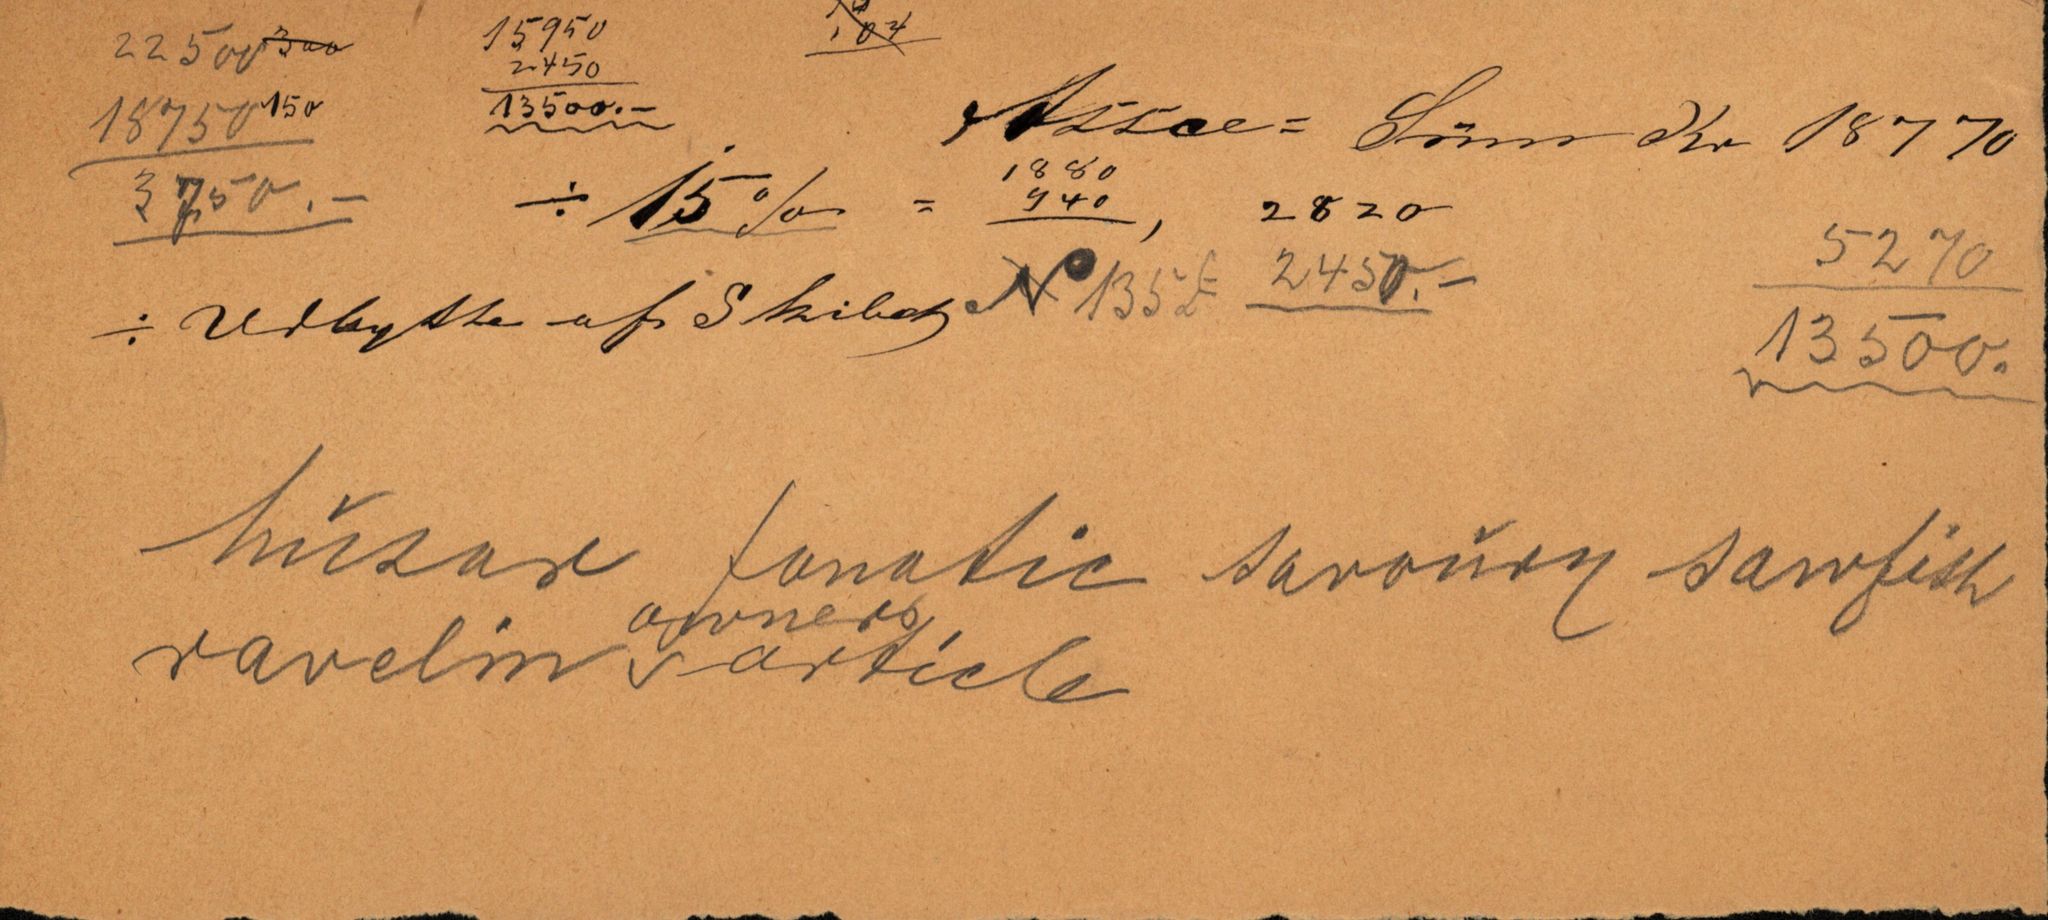 22500 300 15950 104
2450
18750 150 13500.-
Assce= Sum Kr 18770
3750.- ÷ 15% = 1880
940, 2820
5270
÷ Udbytte af Skibet No 135£ 2450.-
13500.
húsar fanatic savoury sawfish
owners
ravelin v article